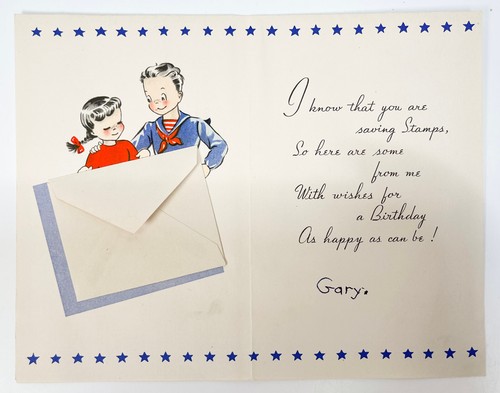 I know that you are
saving Stamps,
So here are some
from me
With wishes for
a Birthday
As happy as can be!
Gary.